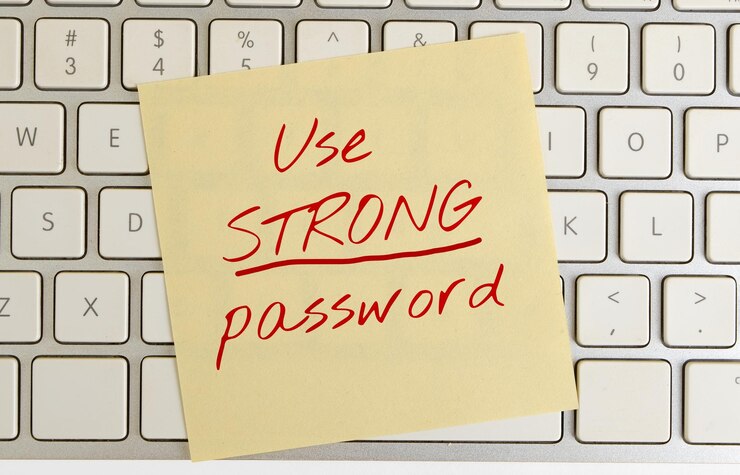 # $ % ^ & ( )
3 4 5 9 0
W E I O P
S D K L
Z X < >
, .
Use
STRONG
password